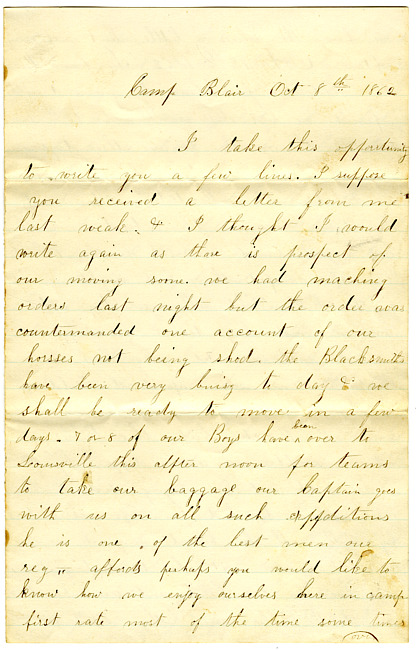 Camp Blair Oct 8th 1862
I take this opportunity
to write you a few lines. I suppose
you received a letter from me
last weak. & I thought I would
write again as thare is prospect of
our moving some. we had maching
orders last night but the order was
countermanded one account of our
horsses not being shod. the Blacksmiths
have been very buisy to day & we
shall be ready to move in a few
days. 7 or 8 of our Boys have been over to
Louisville this after noon for teams
to take our baggage our Captain goes
with us on all such
he is one of the best men our
reg affords perhaps you would like to
know how we enjoy ourselves here in camp
first rate most of the time some times
over